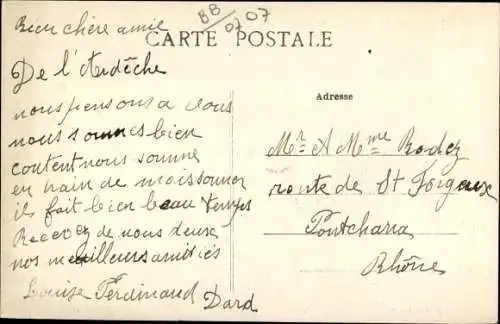 Bien chère amie
BB
0707
CARTE POSTALE
De l'Ardêche
Adresse
nous pensons a vous
nous sommes bien
content nous somme
en train de moissonner
il fait bien beau temps
Recevez de nous deux
nos meilleurs amitiés
Louise Ferdinand Dard
Mr & Mme Rodez
route de St Forgeux
Pontcharra
Rhône